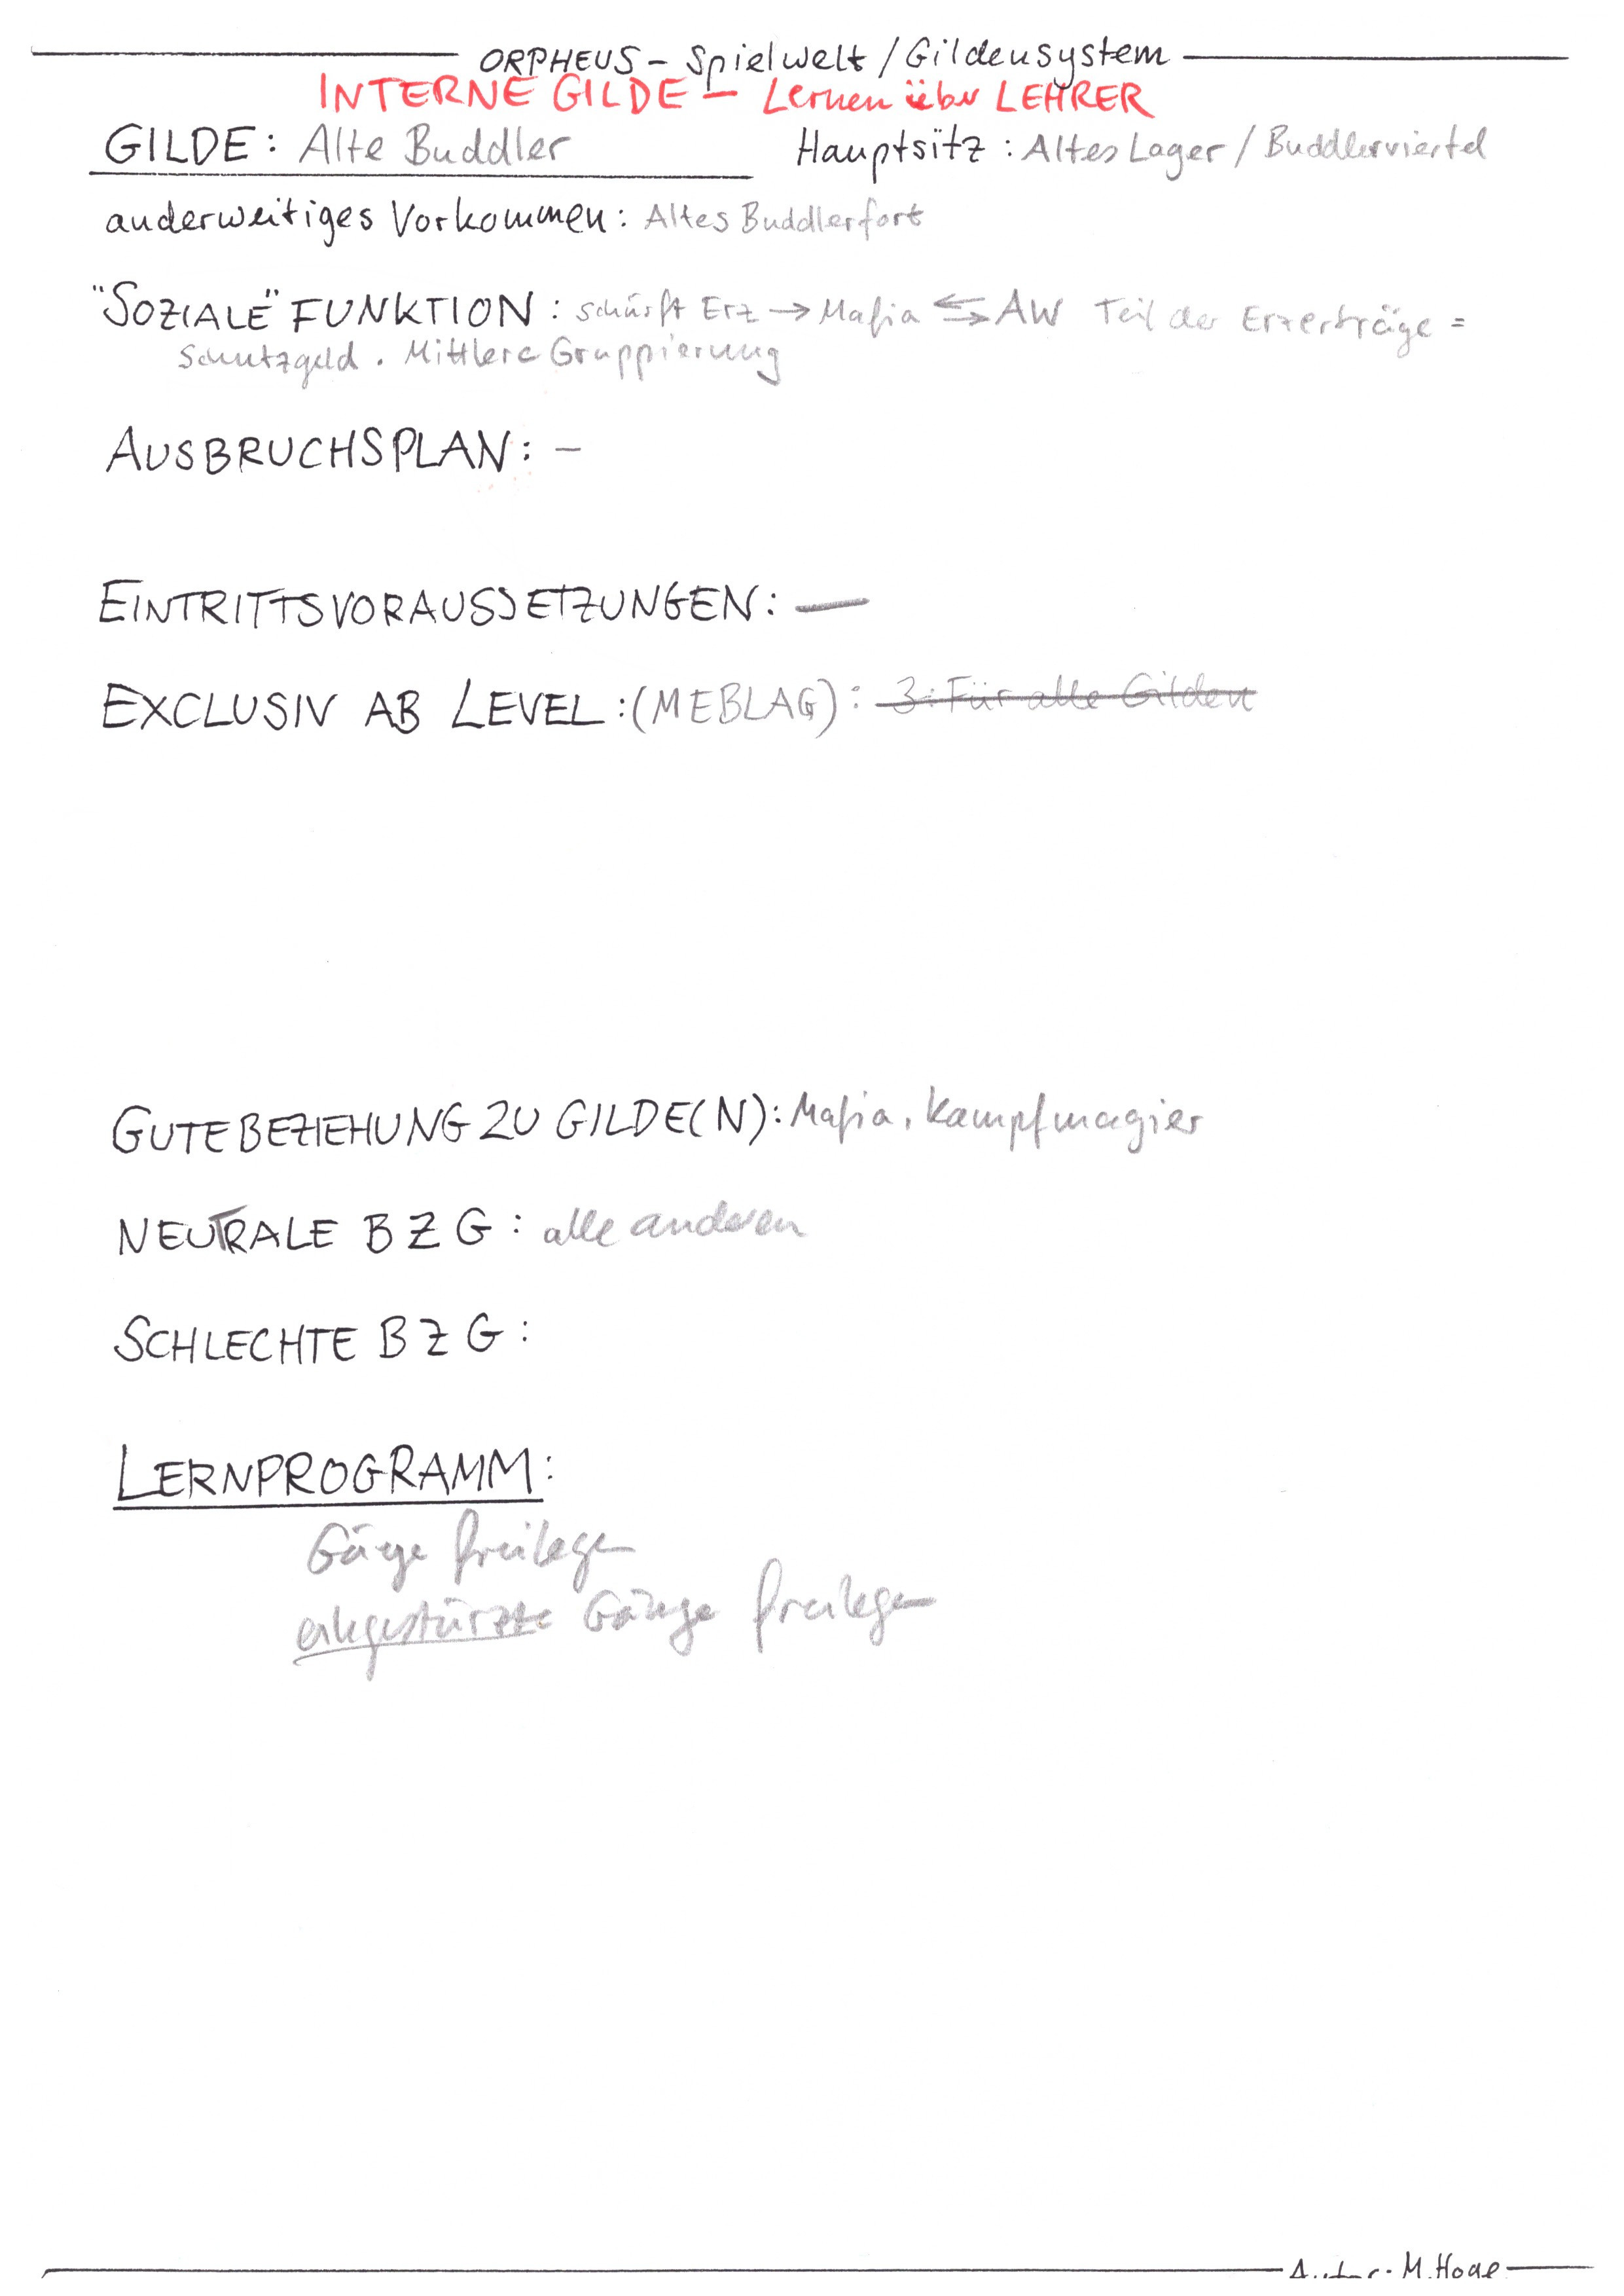 ORPHEUS - Spielwelt / Gildensystem
INTERNE GILDE - Lernen über LEHRER
GILDE: Alte Buddler Hauptsitz: Altes Lager / Buddlerviertel
anderweitiges Vorkommen: Altes Buddlerfort
"SOZIALE" FUNKTION: schürft Erz → Mafia ⇆ AW Teil der Erzerträge =
Schutzgeld. Mittlere Gruppierung
AUSBRUCHSPLAN: -
EINTRITTSVORAUSSETZUNGEN: —
EXCLUSIV AB LEVEL: (MEBLAG): 3: Für alle Gilden
GUTE BEZIEHUNG ZU GILDE(N): Mafia, Kampfmagier
NEUTRALE B Z G: alle anderen
SCHLECHTE B Z G:
LERNPROGRAMM:
Gänge freilegen
Gänge freilegen
M. Hoge